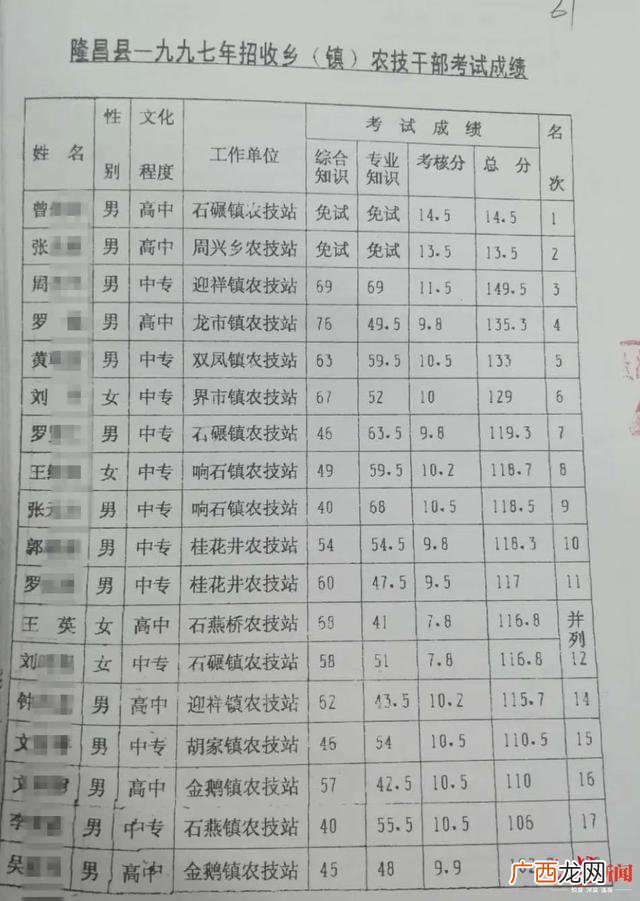 61
隆昌县一九九七年招收乡（镇）农技干部考试成绩
姓名 性别 文化程度 工作单位 考试成绩 名次
综合知识 专业知识 考核分 总分
曾 男 高中 石碾镇农技站 免试 免试 14.5 14.5 1
张 男 高中 周兴乡农技站 免试 免试 13.5 13.5 2
周 男 中专 迎祥镇农技站 69 69 11.5 149.5 3
罗 男 高中 龙市镇农技站 76 49.5 9.8 135.3 4
黄 男 中专 双凤镇农技站 63 59.5 10.5 133 5
刘 女 中专 界市镇农技站 67 52 10 129 6
罗 男 中专 石碾镇农技站 46 63.5 9.8 119.3 7
王 女 中专 响石镇农技站 49 59.5 10.2 118.7 8
张 男 中专 响石镇农技站 40 68 10.5 118.5 9
郭 男 中专 桂花井农技站 54 54.5 9.8 118.3 10
罗 男 中专 桂花井农技站 60 47.5 9.5 117 11
王英 女 高中 石燕桥农技站 41 7.8 116.8 并列12
刘 女 中专 石碾镇农技站 58 51 7.8 116.8
钟 男 高中 迎祥镇农技站 62 43.5 10.2 115.7 14
文 男 中专 胡家镇农技站 46 54 10.5 110.5 15
文 男 高中 金鹅镇农技站 57 42.5 10.5 110 16
李 男 中专 石燕镇农技站 40 55.5 10.5 106 17
吴 男 高中 金鹅镇农技站 45 48 9.9
新闻
广西龙网